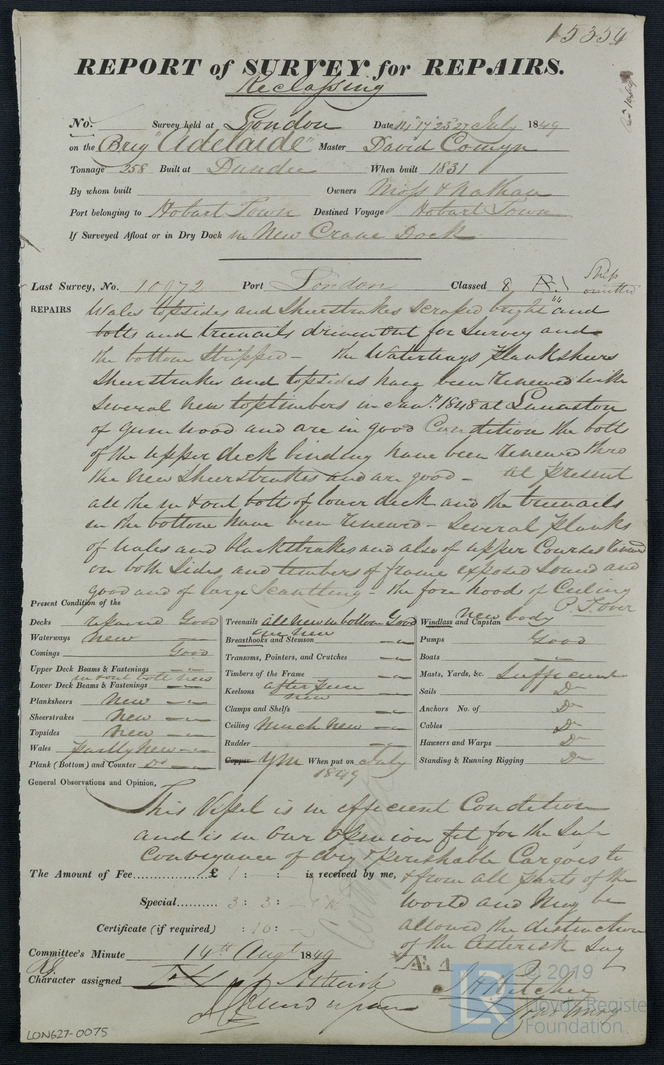 15354
REPORT of SURVEY for REPAIRS.
Reclassing
No. Survey held at London Date 14 17 25 27 July 1849
on the Brig "Adelaide" Master David Comyn
Tonnage 258 Built at Dundee When built 1831
By whom built Owners Moss & Nathan
Port belonging to Hobart Town Destined Voyage Hobart Town
If Surveyed Afloat or in Dry Dock in New Crane Dock
Last Survey, No. 10972 Port London Classed 8 Æ.1 Ship omitted
REPAIRS Wales topsides and Sheerstrakes scraped bright and
bolts and treenails driven out for Survey and
the bottom Stripped - the Waterways plankshears
Sheerstrakes and topsides have been renewed with
several new toptimbers in Jany. 1848 at Launceston
of gum wood and are in good Condition the bolts
of the upper deck binding have been renewed thro
the new Sheerstrakes and are good - at present
all the in & out bolts of lower deck and the treenails
in the bottom have been renewed - Several planks
of wales and blackstrakes and also of upper Courses
on both Sides and timbers of frame exposed Sound and
good and of large Scantling - the fore hoods of Ceiling
P.T.over
Present Condition of the
Decks repaired Good
Waterways New
Comings Good
Upper Deck Beams & Fastenings
in & out bolts new
Lower Deck Beams & Fastenings
Planksheers New
Sheerstrakes New
Topsides New
Wales partly New
Plank (Bottom) and Counter Do
Treenails all new in bottom Good
one new
Breasthooks and Stemson
Transoms, Pointers, and Crutches
Timbers of the Frame
Keelsons after piece new
Clamps and Shelfs
Ceiling Much New
Rudder
Copper YM When put on July 1849
Windlass and Capstan New body
Pumps Good
Boats
Masts, Yards, &c. Sufficient
Sails Do
Anchors No. of Do
Cables Do
Hawsers and Warps Do
Standing & Running Rigging Do
General Observations and Opinion,
This Vessel is in efficient Condition
and is in our opinion fit for the Safe
Conveyance of dry & perishable Cargoes to
& from all parts of the
World and May be
allowed the distinction
of the Asterisk Say
Æ 1
The Amount of Fee £ 1 : : is received by me,
Special 3 : 3 : -
Certificate (if required) : 10 : -
Committee's Minute 14th Augt 1849
Character assigned
LON627-0075
© 2019
Lloyd's Register
Foundation